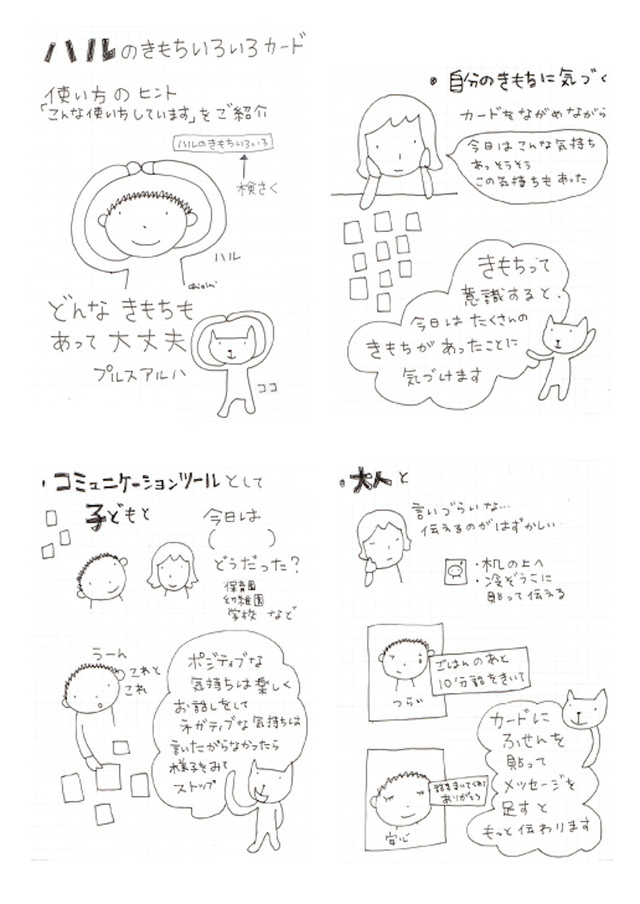 ハルのきもちいろいろカード
使い方のヒント
「こんな使い方しています」をご紹介
ハルのきもちいろいろ
検さく
ハル
どんな きもちも
あって 大丈夫
プルスアルハ
ココ
・自分のきもちに気づく
カードをながめながら
今日はこんな気持ち
あっそうそう
この気持ちもあった
きもちって
意識すると、
今日は たくさんの
きもちが あったことに
気づけます
・コミュニケーションツールとして
子どもと
今日は
(　　　)
どうだった?
保育園
幼稚園
学校 など
うーん
これと
これ
ポジティブな
気持ちは楽しく
お話しをして
ネガティブな気持ちは
言いたがらなかったら
様子をみて
ストップ
・大人と
言いづらいな…
伝えるのがはずかしい…
・机の上へ
・冷ぞうこに
貼って伝える
ごはんのあと
10分話をきいて
つらい
話をきいてくれて
ありがとう
安心
カードに
ふせんを
貼って
メッセージを
足すと
もっと伝わります